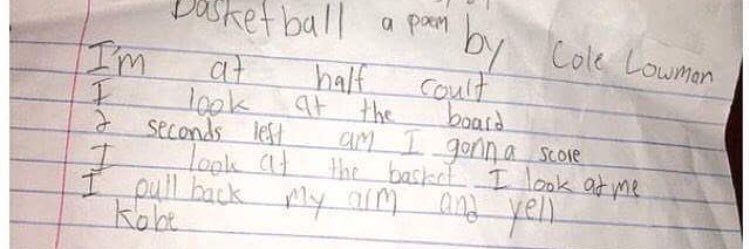 Basketball a poem by Cole Lowman
I'm at half court
I look at the board
2 seconds left am I gonna score
I look at the basket I look at me
I pull back my arm and yell
Kobe